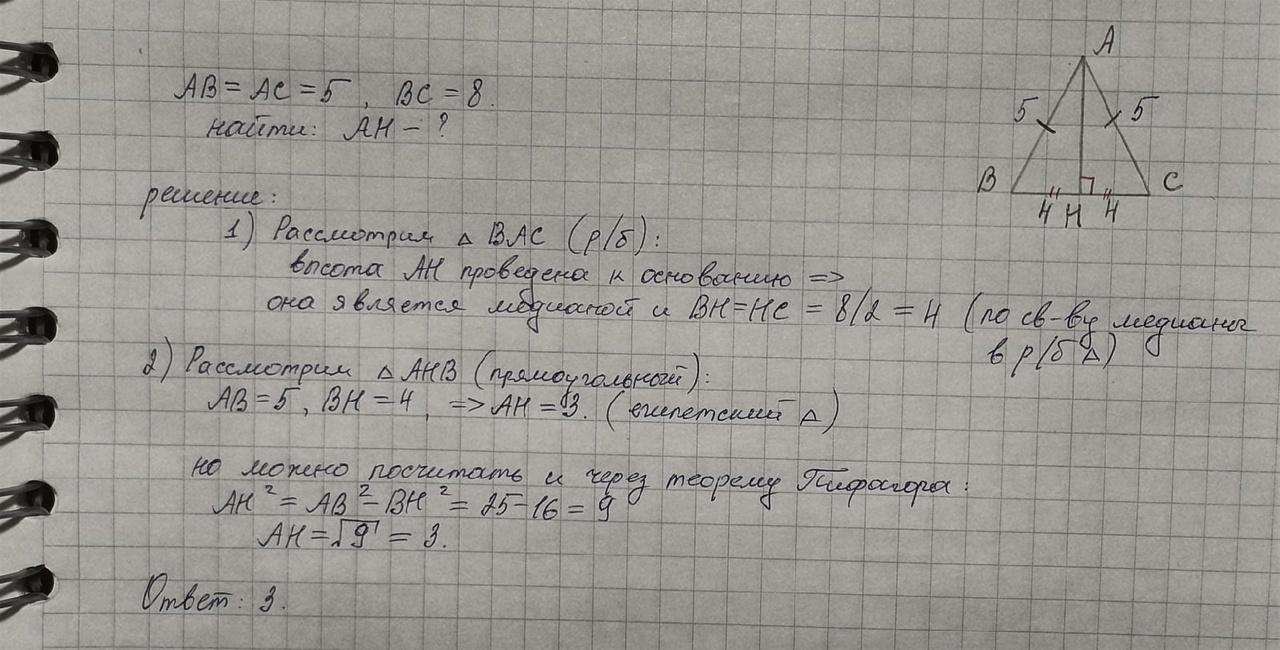 AB = AC = 5, BC = 8.
найти: AH - ?
решение:
1) Рассмотрим △ BAC (р/б):
высота AH проведена к основанию =>
она является медианой и BH=HC = 8/2 = 4 (по св-ву медианы
в р/б △)
2) Рассмотрим △ AHB (прямоугольный):
AB=5, BH=4, => AH=3. (египетский △)
но можно посчитать и через теорему Пифагора:
AH² = AB² - BH² = 25-16 = 9
AH=√9 = 3.
Ответ: 3.
A
5 5
B C
4 H 4